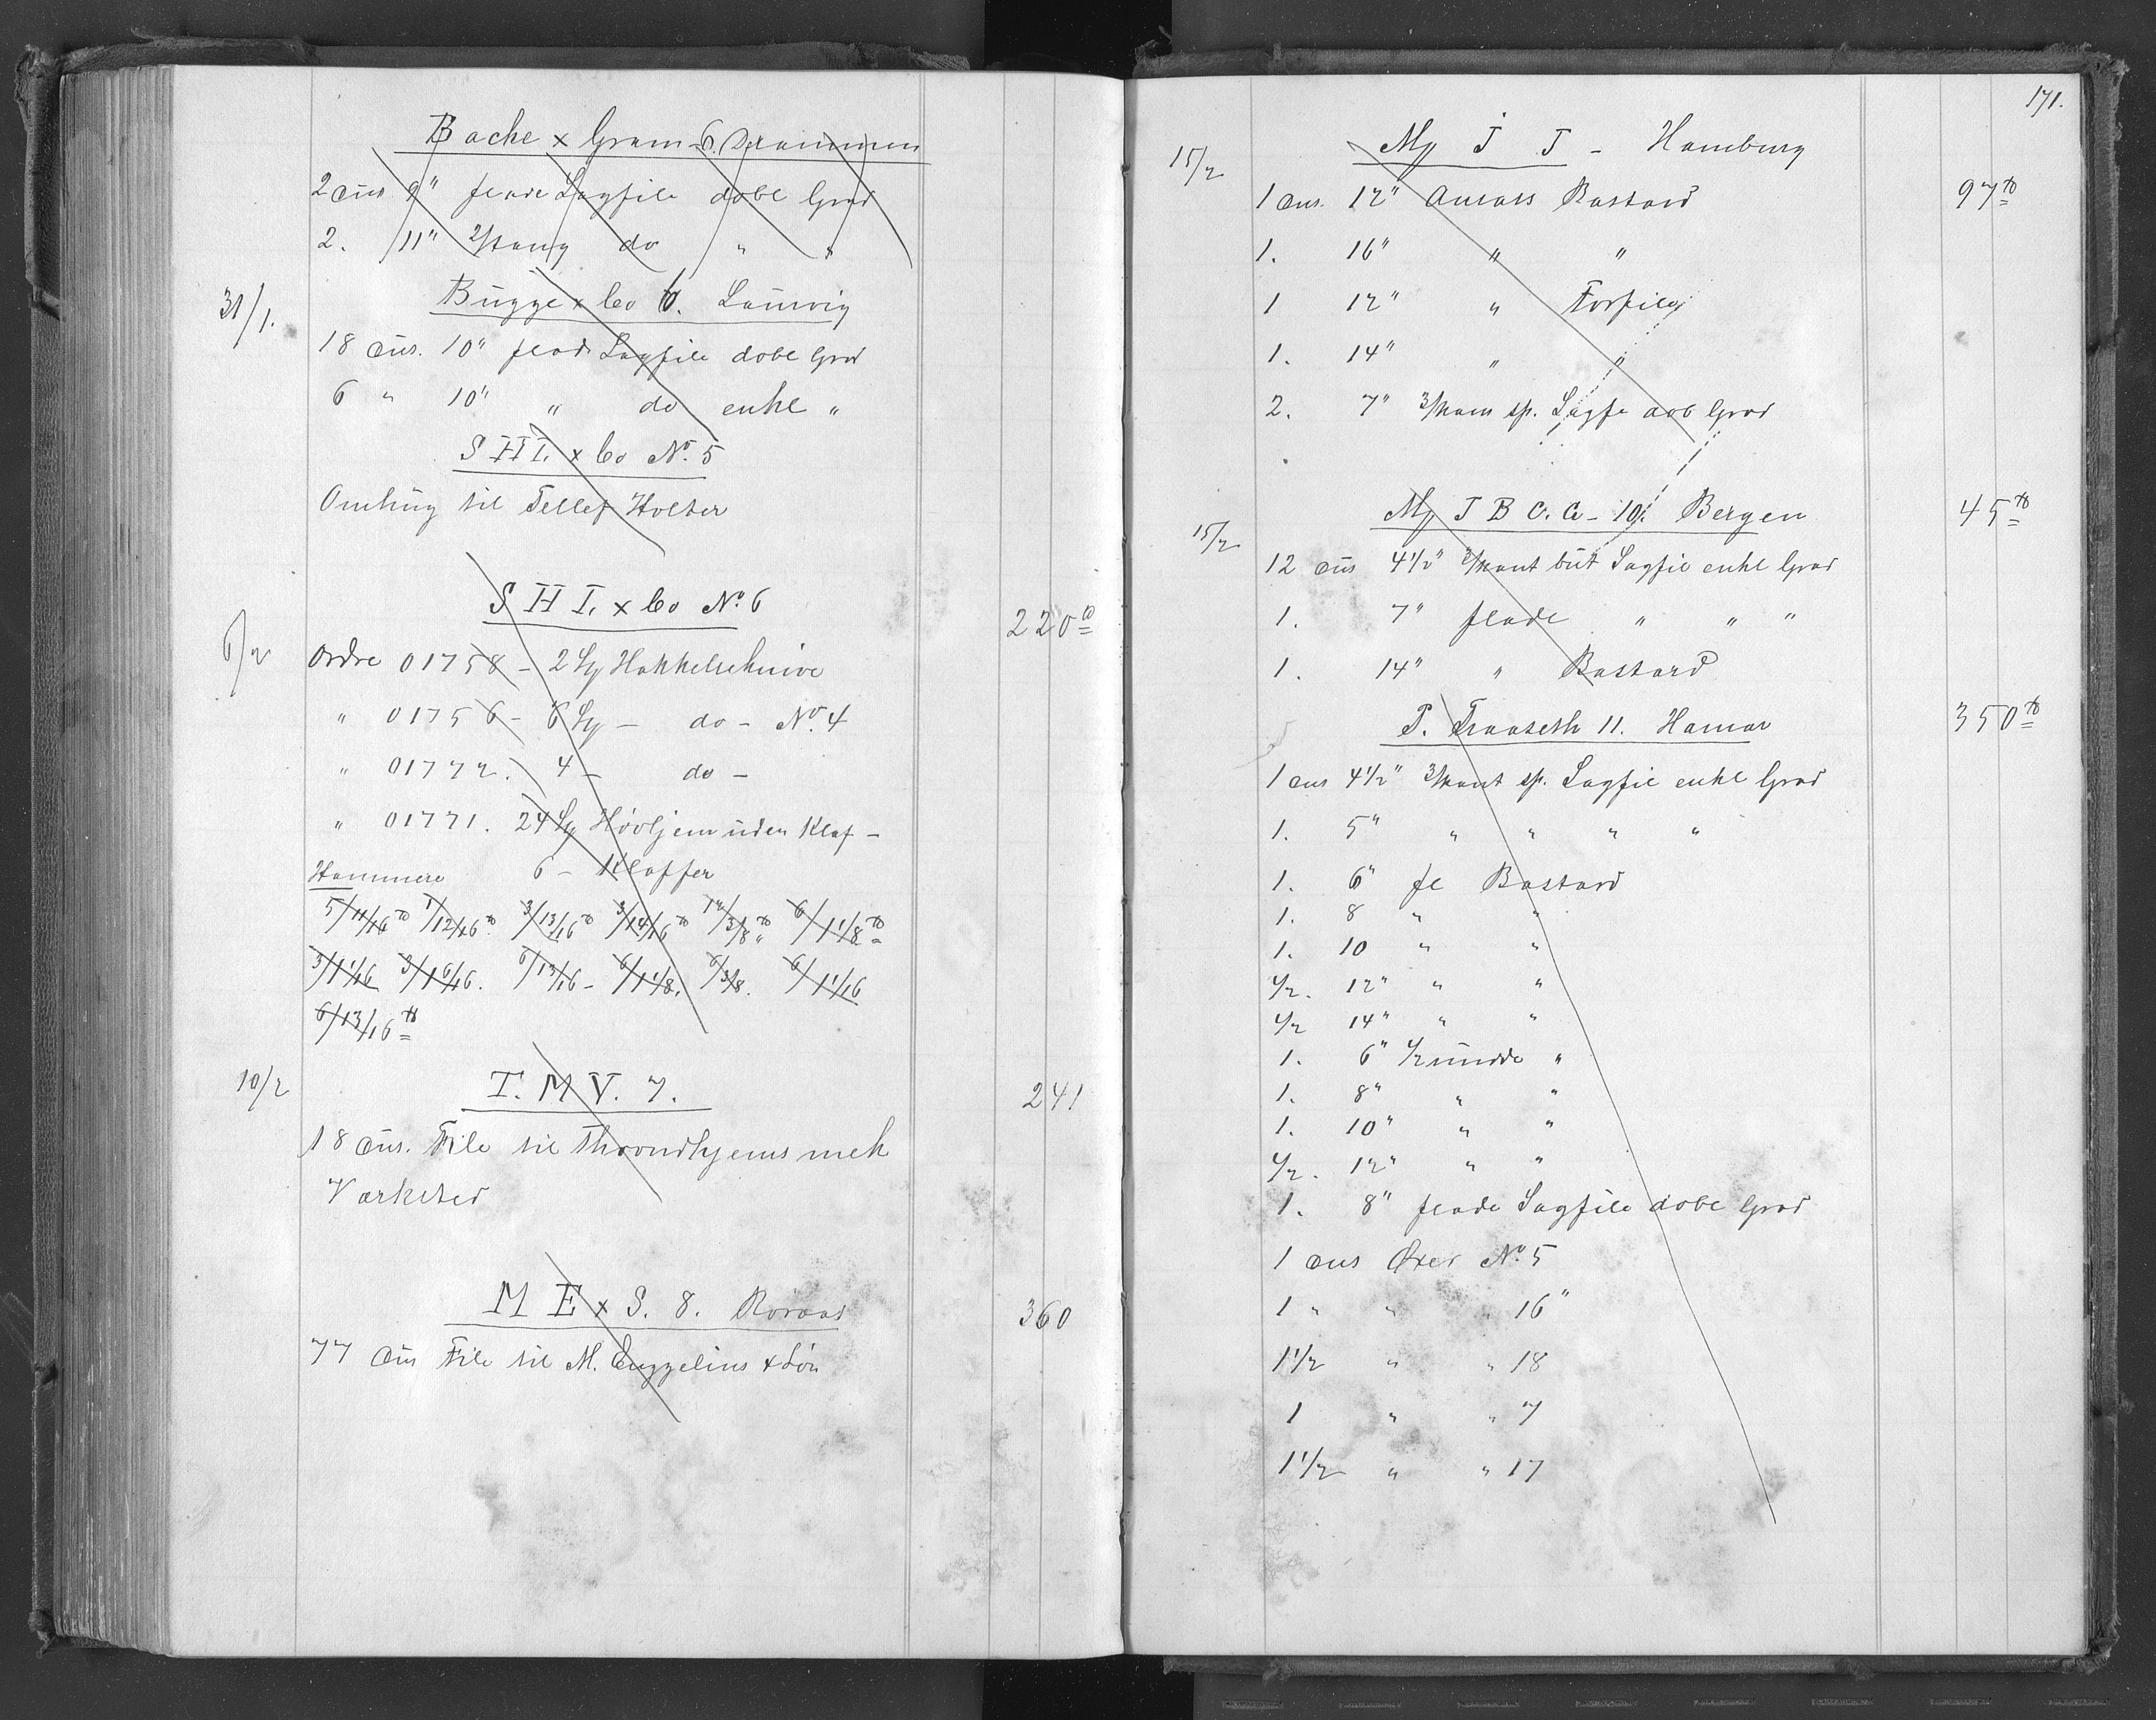 Bache x Gram 6. Drammen
2 dus 9" flade Sagfile dobl Grad
2. 11" 2/kang do " "
31/1.
Bugge x Co 6. Laurvig
18 dus. 10" flad Sagfile dobl Grad
6 " 10" " do enkl "
S H I. x Co No. 5
til Tellef Holter
S H I. x Co No. 6
220 tt
6/2
Ordre 01758 - 2 Sy Hakkelseknive
" 01756 - 6 Sy - do - No. 4
" 01772. 4 - do -
" 01771. 24 Sy Høvljern uden Klaf -
Hammere 6 - Klaffer
5/11/16 tt 7/12/16 tt 3/13/16 tt 3/14/16 tt 12/3/8 tt 6/1 1/8 tt
3/1 1/16 3/1 6/16. 6/13/16 - 6/1 1/8. 6/3/8. 6/1 1/16
6/13/16 tt
10/2
T. M V. 7.
241
18 dus. File til Throndhjems mek
Værksted
M E x S. 8. Röraas
360
77 dus File til M. Engzelius & Sön
171.
15/2
Mg J J - Hamburg
1 dus. 12" Ansats Bastard
97 tt
1. 16" " "
1 12" " Forfile
1. 14" " "
2. 7" 3/kant sp. Sagfe dob Grad
Mg J B C. Co - 10. Bergen
45 tt
15/2
12 dus 4 1/2" 3/kant but Sagfil enkl Grad
1. 7" flade " " "
1. 14" " Bastard
P. Traaseth 11. Hamar
350 tt
1 dus 4 1/2" 3/kant sp. Sagfil enkl Grad
1. 5" " " " "
1. 6" fl Bastard
1. 8 " "
1. 10 " "
1/2. 12" " "
1/2 14" " "
1. 6" 1/2 runde "
1. 8" " "
1. 10" " "
1/2. 12" " "
1. 8" flade Sagfile dobl Grad
1 dus Øxer No. 5
1 " " " 16"
1 1/2 " " 18
1 " " 7
1 1/2 " " 17